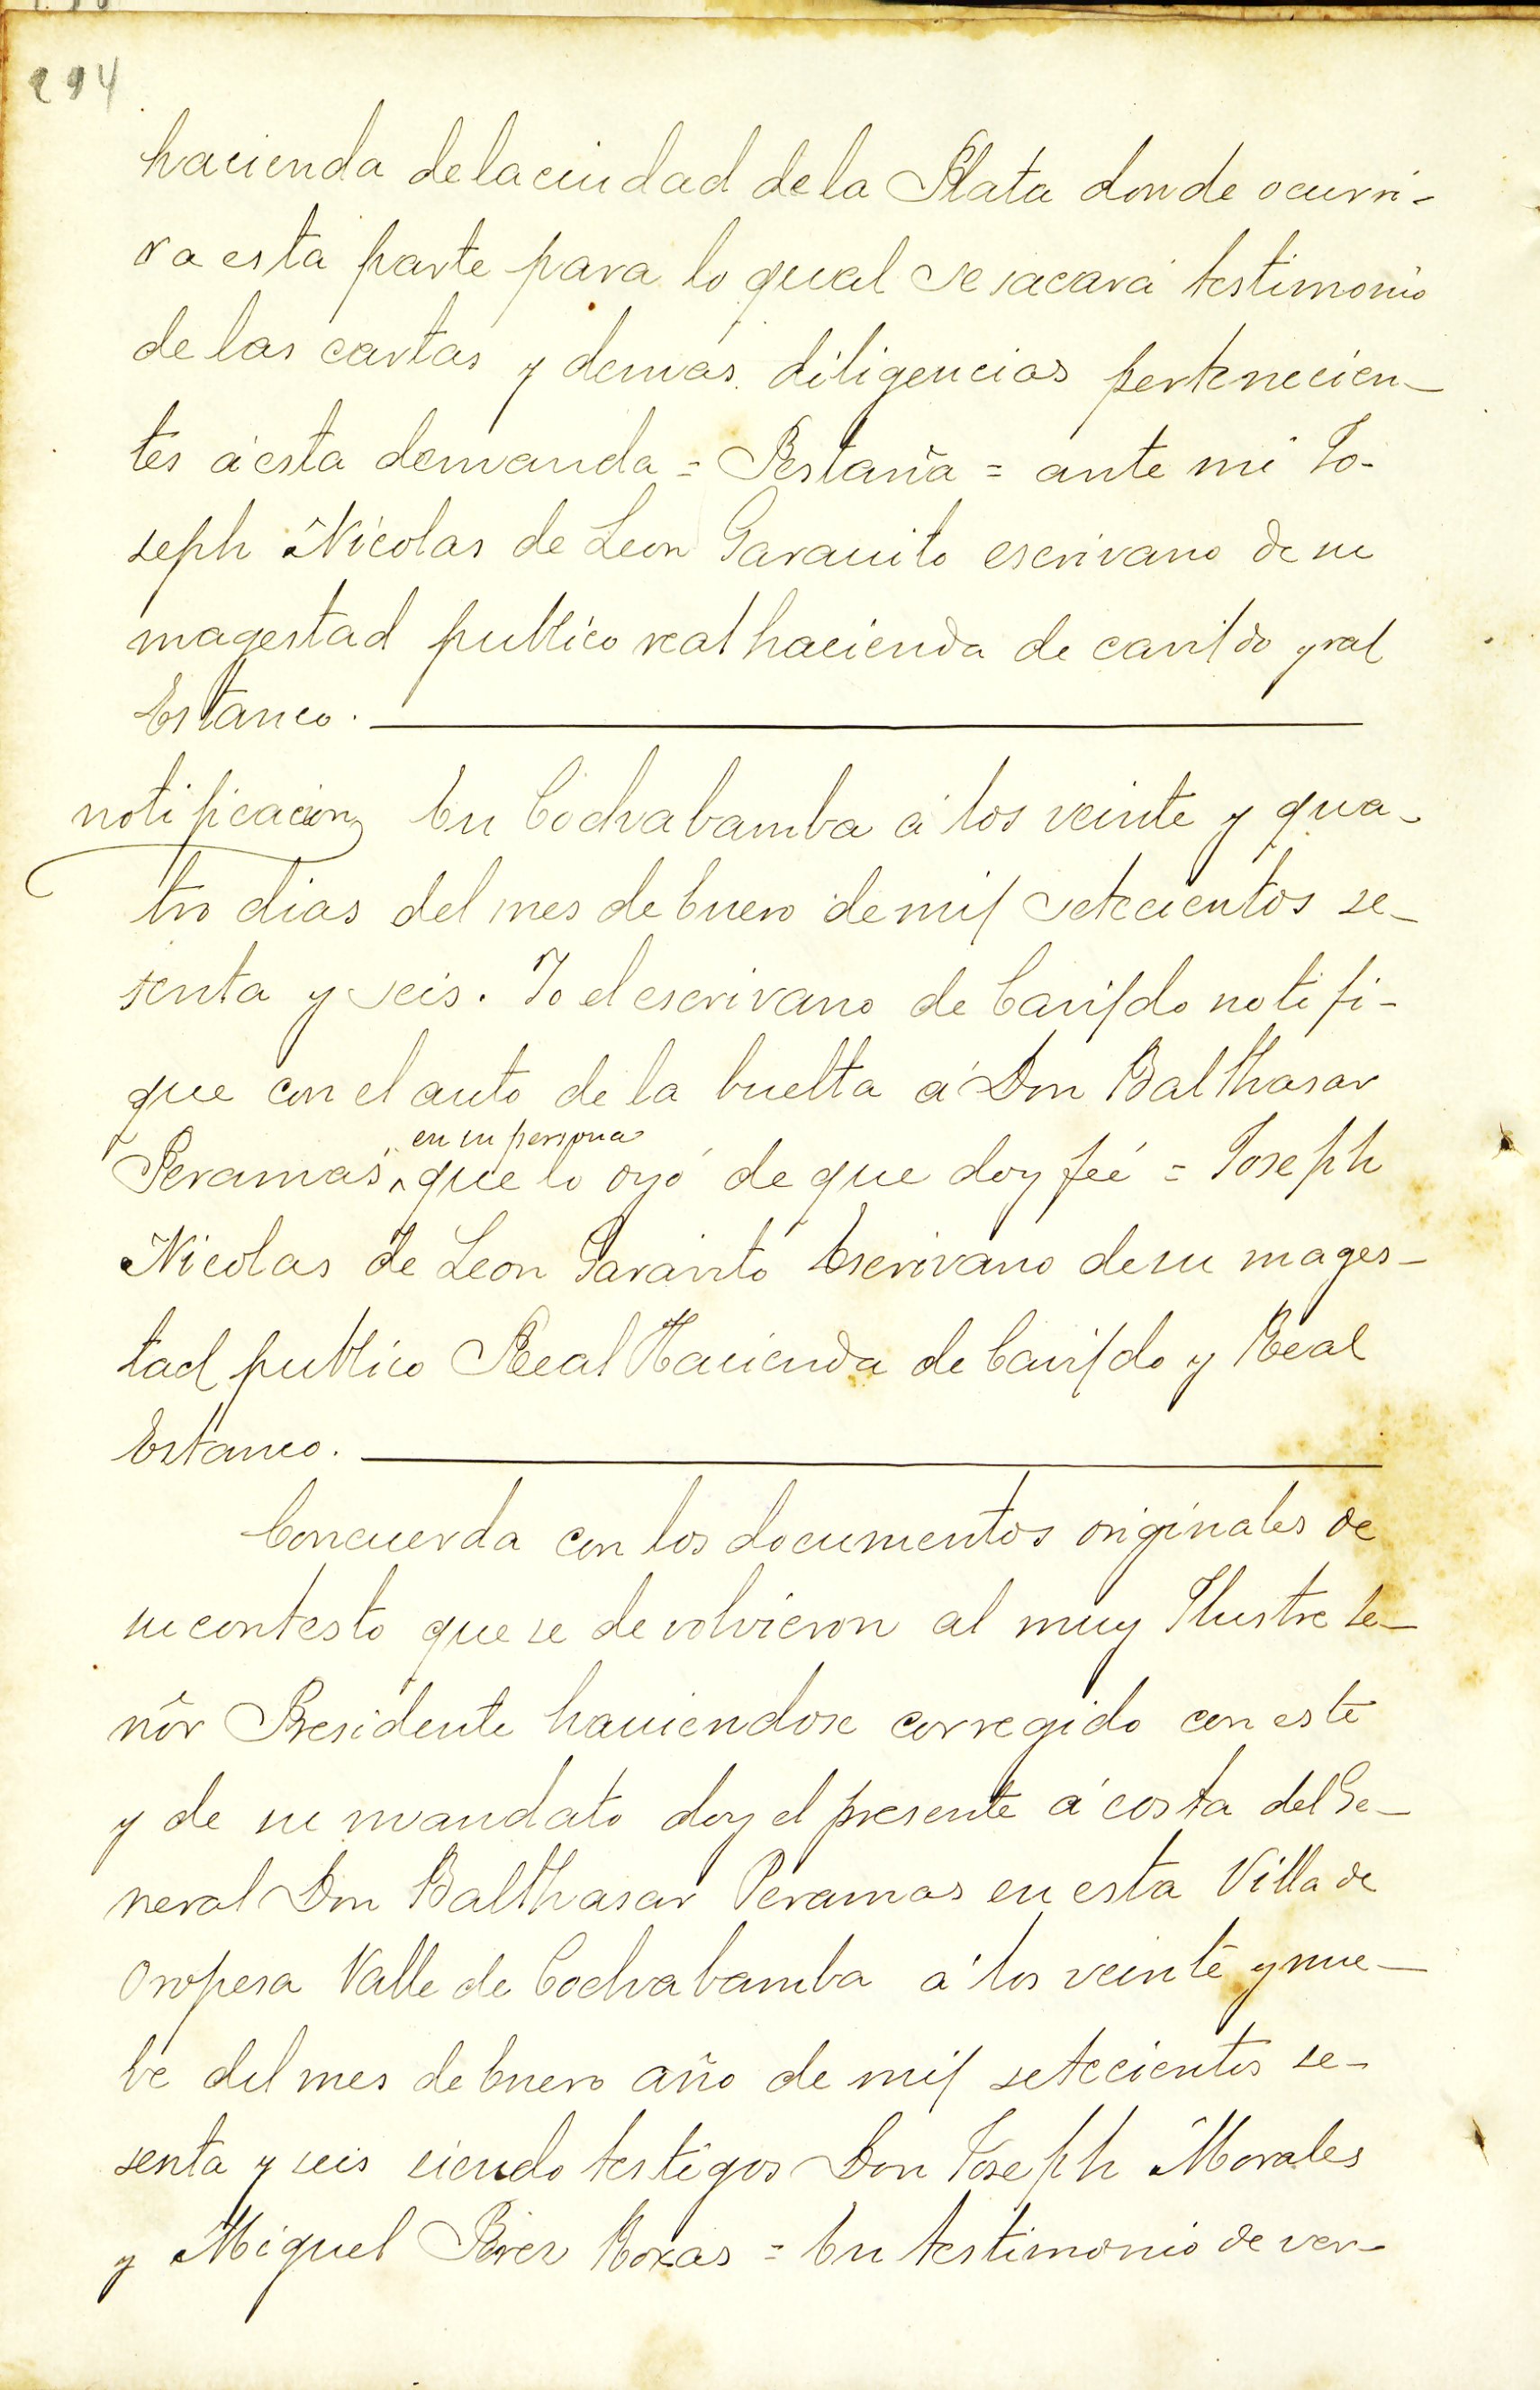 294
hacienda de la ciudad de la Plata donde ocurri-
ra esta parte para lo qual se sacará testimonio
de las cartas y demas diligencias pertenecien-
tes á esta demanda = Pestaña = ante mi Jo-
seph Nicolas de Leon Garauito escrivano de su
magestad publico real hacienda de cavildo y ral
Estanco.
notificacion En Cochabamba á los veinte y qua-
tro dias del mes de Enero de mil setecientos se-
senta y seis. Yo el escrivano de Cavildo notifi-
que con el auto de la buelta á Don Balthasar
en su persona
Peramas, que lo oyó de que doy feé = Joseph
Nicolas de Leon Garavito Escrivano de su mages-
tad publico Real Hacienda de Cavildo y Real
Estanco.
Concuerda con los documentos originales de
su contesto que se devolvieron al muy Ilustre Se-
ñor Presidente haviendose corregido con este
y de su mandato doy el presente á costa del Ge-
neral Don Balthasar Peramas en esta Villa de
Oropesa Valle de Cochabamba á los veinte y nue-
be del mes de Enero año de mil setecientos se-
senta y seis siendo testigos Don Joseph Morales
y Miguel Perez Roxas = En testimonio de ver-